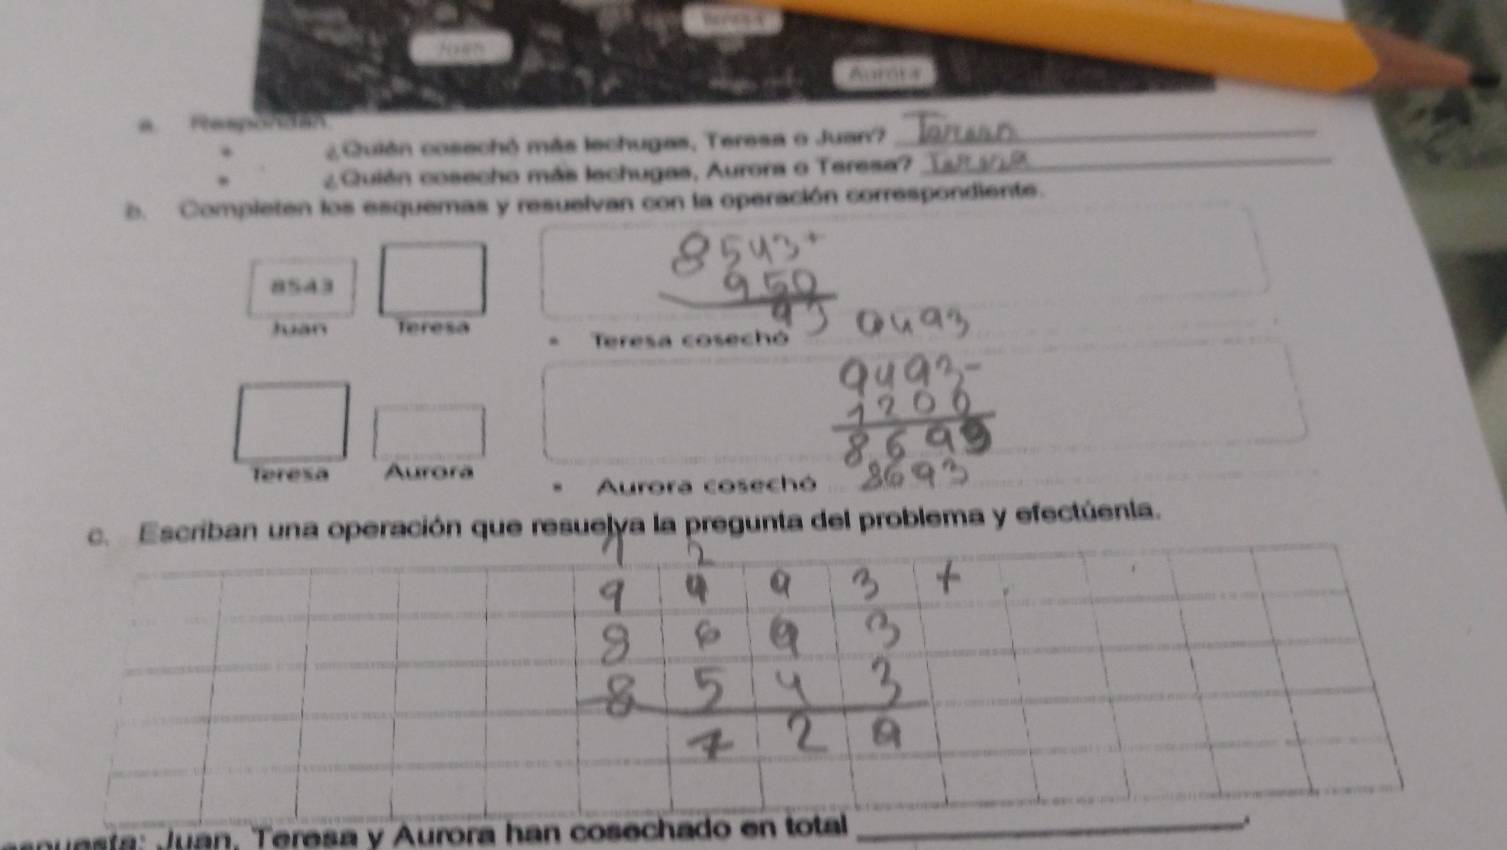 Juan
Teresa
Aurora
a. Respondan.
• ¿Quién cosechó más lechugas, Teresa o Juan?
• ¿Quién cosecho más lechugas, Aurora o Teresa?
b. Completen los esquemas y resuelvan con la operación correspondiente.
8543+
950
8543
93 9493
Juan Teresa
• Teresa cosechó
9493-
1200
8693
Teresa Aurora
• Aurora cosechó 8693
c. Escriban una operación que resuelva la pregunta del problema y efectúenla.
1 2
9 4 9 3 +
8 6 9 3
8 5 4 3
7 2 9
Juan, Teresa y Aurora han cosechado en total